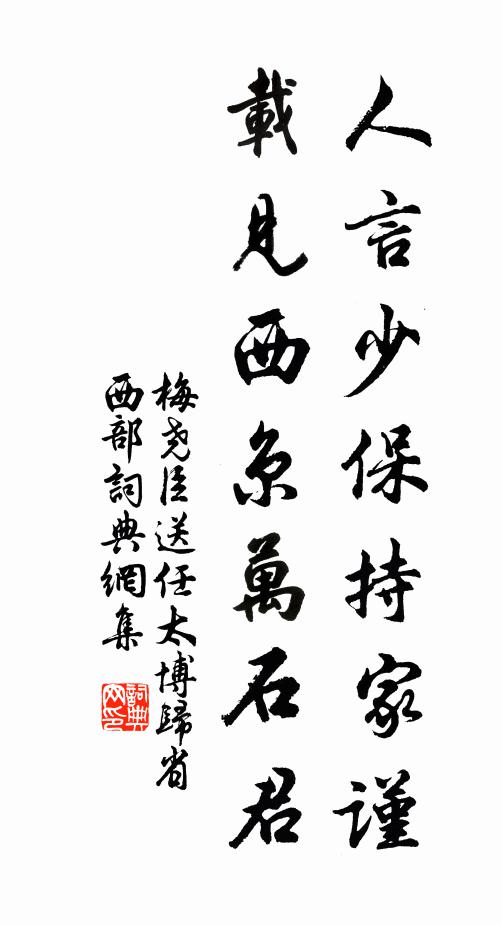 人言少保持家謹
載見西京萬石君
梅堯臣送任太博歸省
西部詞典網集
詞典网印